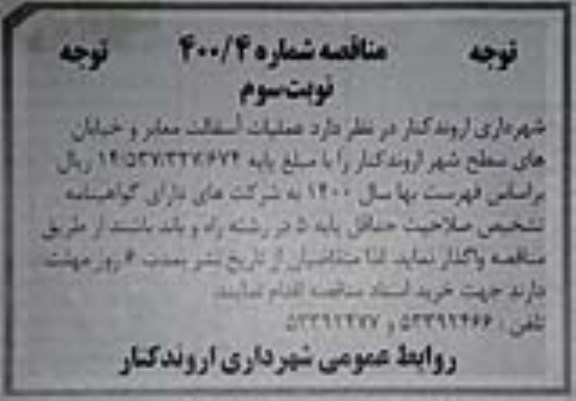 توجه مناقصه شماره ۴۰۰/۴ توجه
نوبت سوم
شهرداری اروندکنار در نظر دارد عملیات آسفالت معابر و خیابان
های سطح شهر اروندکنار را با مبلغ پایه ۱۴/۵۳۷/۳۲۷/۶۷۴ ریال
براساس فهرست بها سال ۱۴۰۰ به شرکت های دارای گواهینامه
تشخیص صلاحیت حداقل پایه ۵ در رشته راه و باند باشند از طریق
مناقصه واگذار نماید. لذا متقاضیان از تاریخ نشر بمدت ۶ روز مهلت
دارند جهت خرید اسناد مناقصه اقدام نمایند.
تلفن: ۵۳۳۹۲۴۶۶ و ۵۳۳۹۲۴۷۷
روابط عمومی شهرداری اروندکنار